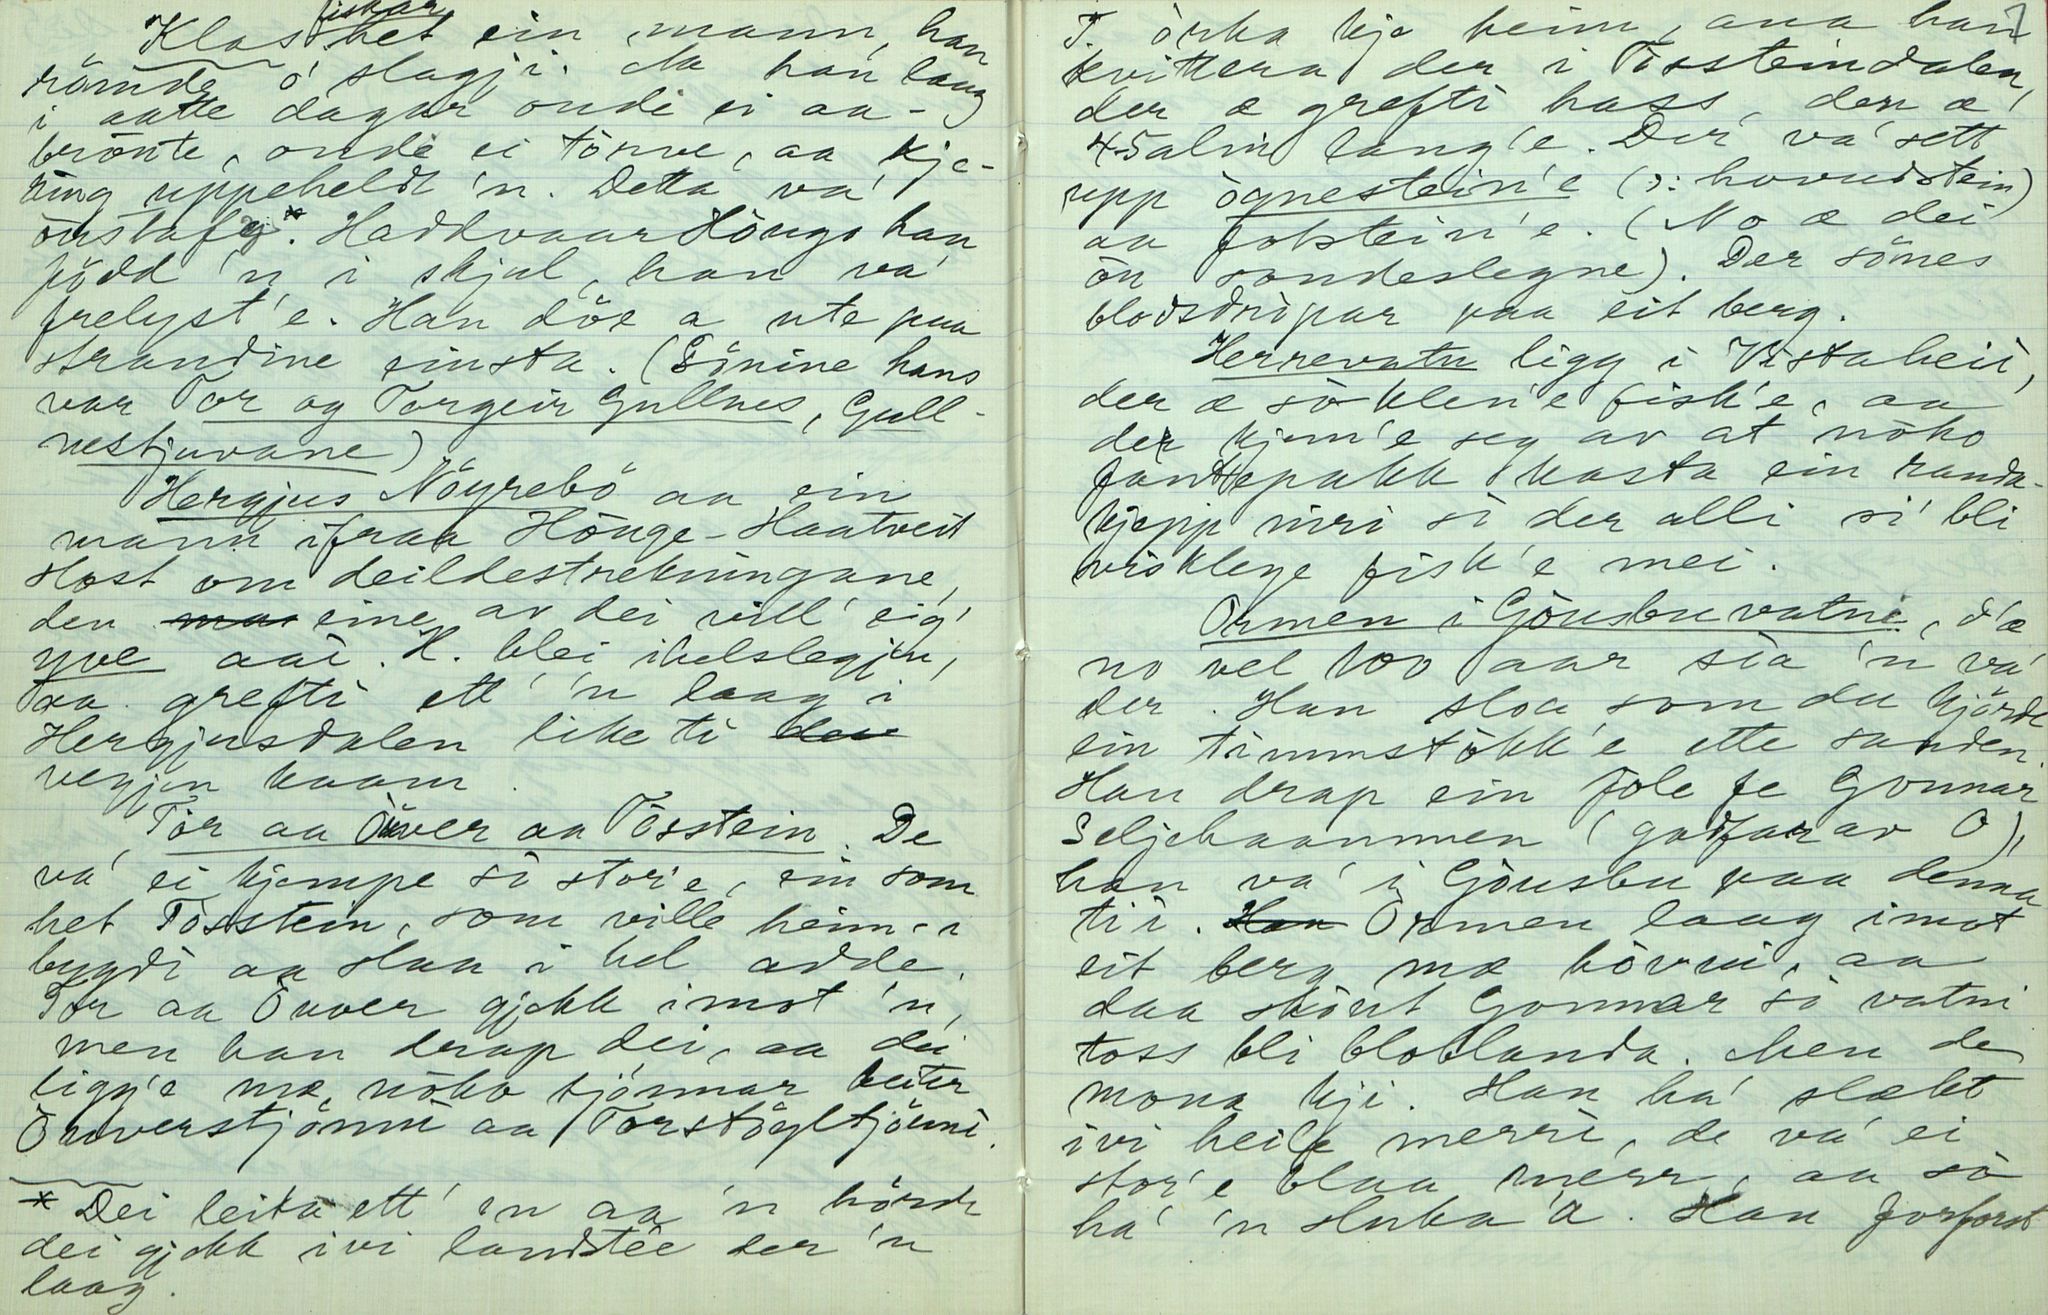 fiskar
Klas het ein mann, han
römde ó slagji. Aa han laag
i aatte dagar onde ei aa-
brönte, onde ei törve, aa kje-
ring uppeheldt 'n. Detta va'
örstafg*. Haddvaar Höugo han
född 'n i skjul, han va'
frelyst'e. Han döe a ute paa
strandine einsta. (Sönine hans
var Tor og Torgeir Gullnes, Gull-
nestjuvane)
Hergjus Nöyrebö aa ein
mann ifraa Höuge-Haatveit
slost om deildestrekningane,
den eine av dei vill' eig'
yve aai. H. blei ihelslegjin,
aa grefti ett' 'n laag i
Hergjusdalen like ti den
vegjen kaam.
Tor aa Öuver aa Tosstein. De
va' ei kjempe so stor'e, ein som
het Tosstein, som ville heim i
bygdi aa slaa i hel adde.
Tor aa Öuver gjekk imot 'n,
men han drap dei, aa dei
ligg'e mæ noko tjönnar heiter
Öuverstjönni aa Torstöyltjönni.
* Dei leita ett' 'n aa 'n hörde
dei gjekk ivi landstée der 'n
laag.
7
T. órka kje heim, ana han
kvittera der i Tosteindalen,
der æ grefti hass, den æ
45 alin lang'e. Der va' sett
upp ögnestein'e (ɔ: hovudstein)
aa fotstein'e. (No æ dei
ön sondeslegne). Der sömes
blodsdropar paa eit berg.
Herrevatn ligg i Vistaheii,
der æ so klen'e fisk'e, aa
det kjem'e seg av at noko
fantepakk kasta ein randa-
kjepp niri so der alli si' bli
visklege fisk'e mei.
Ormen i Gousbuvatni, d'æ
no vel 100 aar sia 'n va'
der. Han sloa som du kjörde
ein timmstökk'e ette sanden.
Han drap ein fole fe Gonnar
Seljehaammen (godfar av O),
han va' i Gousbu paa denna
tii. Han Ormen laag imot
eit berg mæ hövui, aa
daa skönt Gonnar so vatni
toss bli bloblanda. Men de
mona kji. Han ha' slækt
ivi heile merri, de va' ei
stor'e blaa merr, aa so
ha' 'n sluka 'a. Han for forst